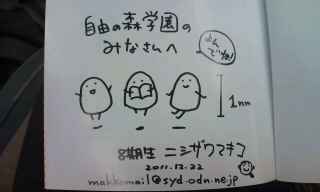 自由の森学園の
みなさんへ
よん
でね!
1nm
8期生 ニシザワマキコ
2011.12.22
makkomail@syd.odn.ne.jp